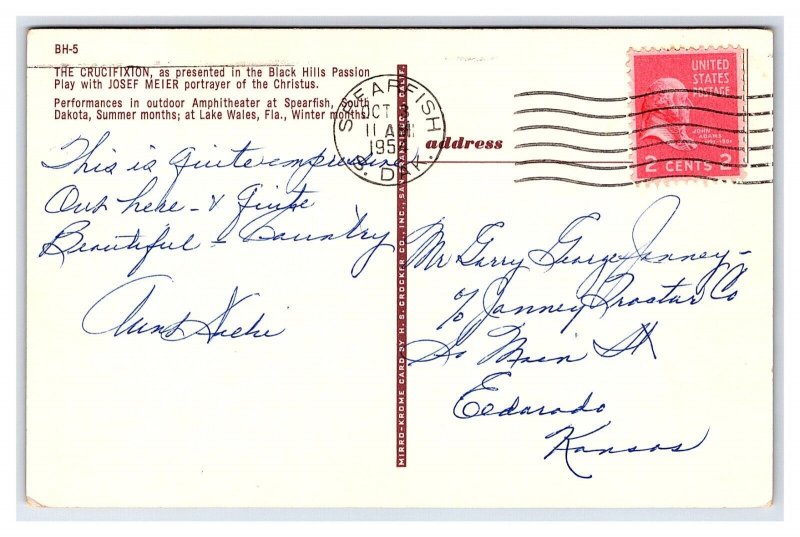 BH-5
THE CRUCIFIXION, as presented in the Black Hills Passion
Play with JOSEF MEIER portrayer of the Christus.
Performances in outdoor Amphitheater at Spearfish, South
Dakota, Summer months; at Lake Wales, Fla., Winter months.
This is quite
Out here - & quite
Beautiful - Country
Aunt
MIRRO-KROME CARD BY H. S. CROCKER CO., INC., SAN FRANCISCO, CALIF.
SPEARFISH
OCT
11 AM
195
S. DAK.
address
UNITED
STATES
POSTAGE
JOHN
ADAMS
2 CENTS 2
Mr Garry George Janney -
% Janney Co
So Main St
Eldorado
Kansas